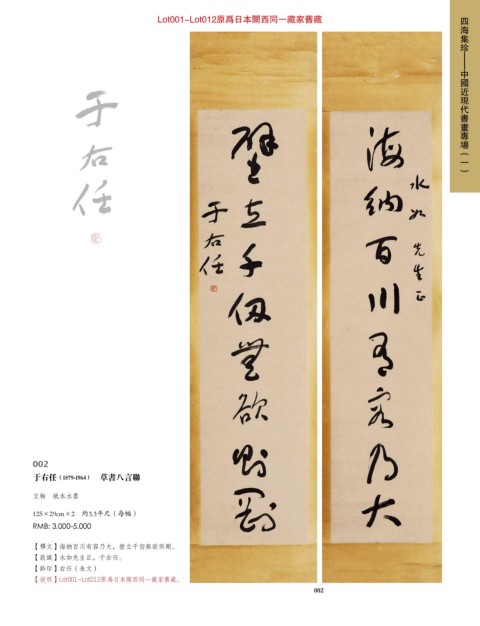 Lot001-Lot012原爲日本關西同一藏家舊藏
四海集珍——中國近現代書畫專場（一）
于右任
海納百川有容乃大
水如先生正
壁立千仞無欲則剛
于右任
002
于右任（1879-1964） 草書八言聯
立軸 紙本水墨
125×29cm×2 約3.3平尺（每幅）
RMB: 3,000-5,000
【釋文】海納百川有容乃大，壁立千仞無欲則剛。
【款識】水如先生正，于右任。
【鈐印】右任（朱文）
【說明】Lot001-Lot012原爲日本關西同一藏家舊藏。
002